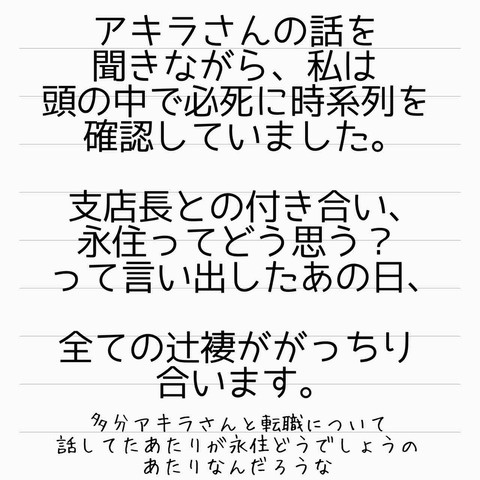 アキラさんの話を
聞きながら、私は
頭の中で必死に時系列を
確認していました。
支店長との付き合い、
永住ってどう思う？
って言い出したあの日、
全ての辻褄ががっちり
合います。
多分アキラさんと転職について
話してたあたりが永住どうでしょうの
あたりなんだろうな